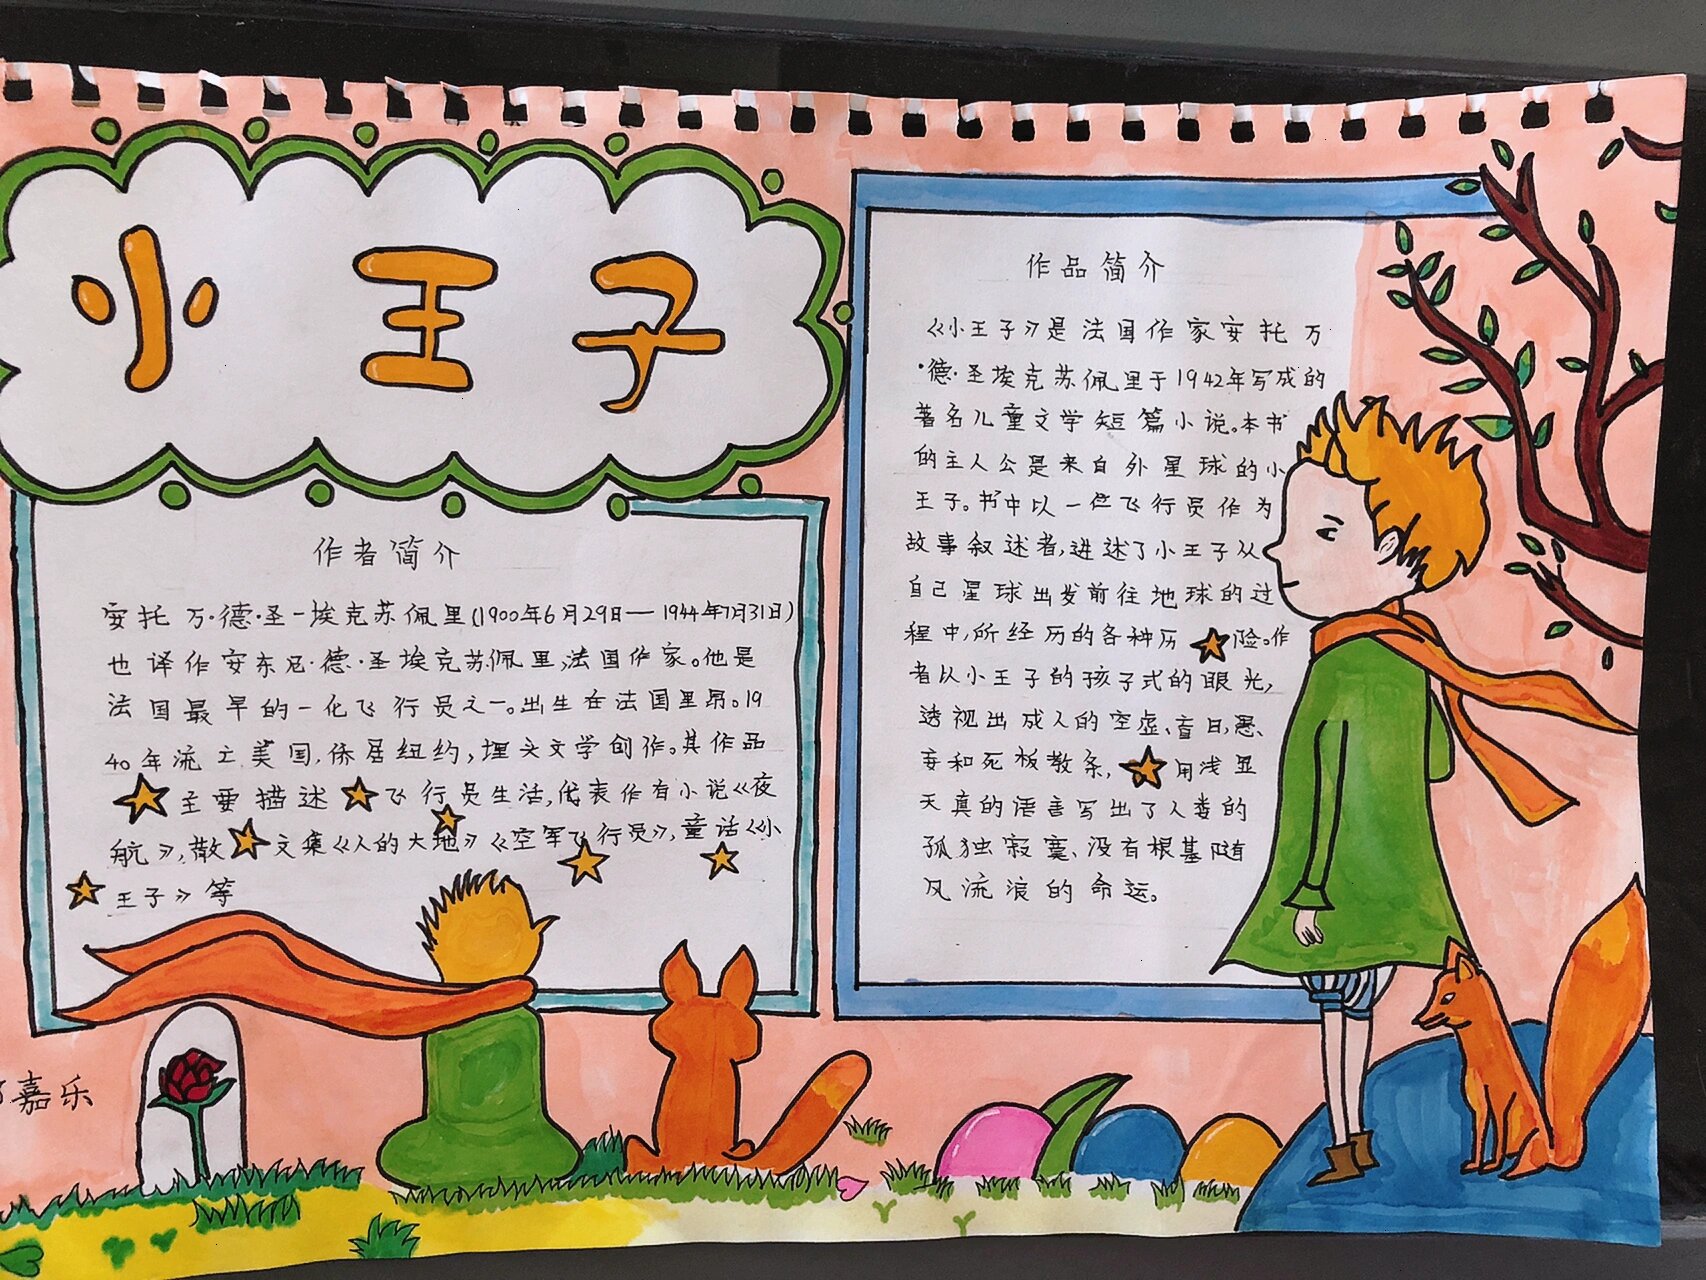 小王子
作者简介
安托万·德·圣-埃克苏佩里(1900年6月29日—1944年7月31日)
也译作安东尼·德·圣埃克苏佩里,法国作家。他是
法国最早的一化飞行员之一。出生在法国里昂。19
40年流亡美国,侨居纽约,埋头文学创作。其作品
主要描述飞行员生活,代表作有小说《夜
航》,散文集《人的大地》《空军飞行员》,童话《小
王子》等
嘉乐
作品简介
《小王子》是法国作家安托万
·德·圣埃克苏佩里于1942年写成的
著名儿童文学短篇小说。本书
的主人公是来自外星球的小
王子。书中以一位飞行员作为
故事叙述者,讲述了小王子从
自己星球出发前往地球的过
程中,所经历的各种历险。作
者以小王子的孩子式的眼光,
透视出成人的空虚、盲目,愚、
妄和死板教条,用浅显
天真的语言写出了人类的
孤独寂寞、没有根基随
风流浪的命运。